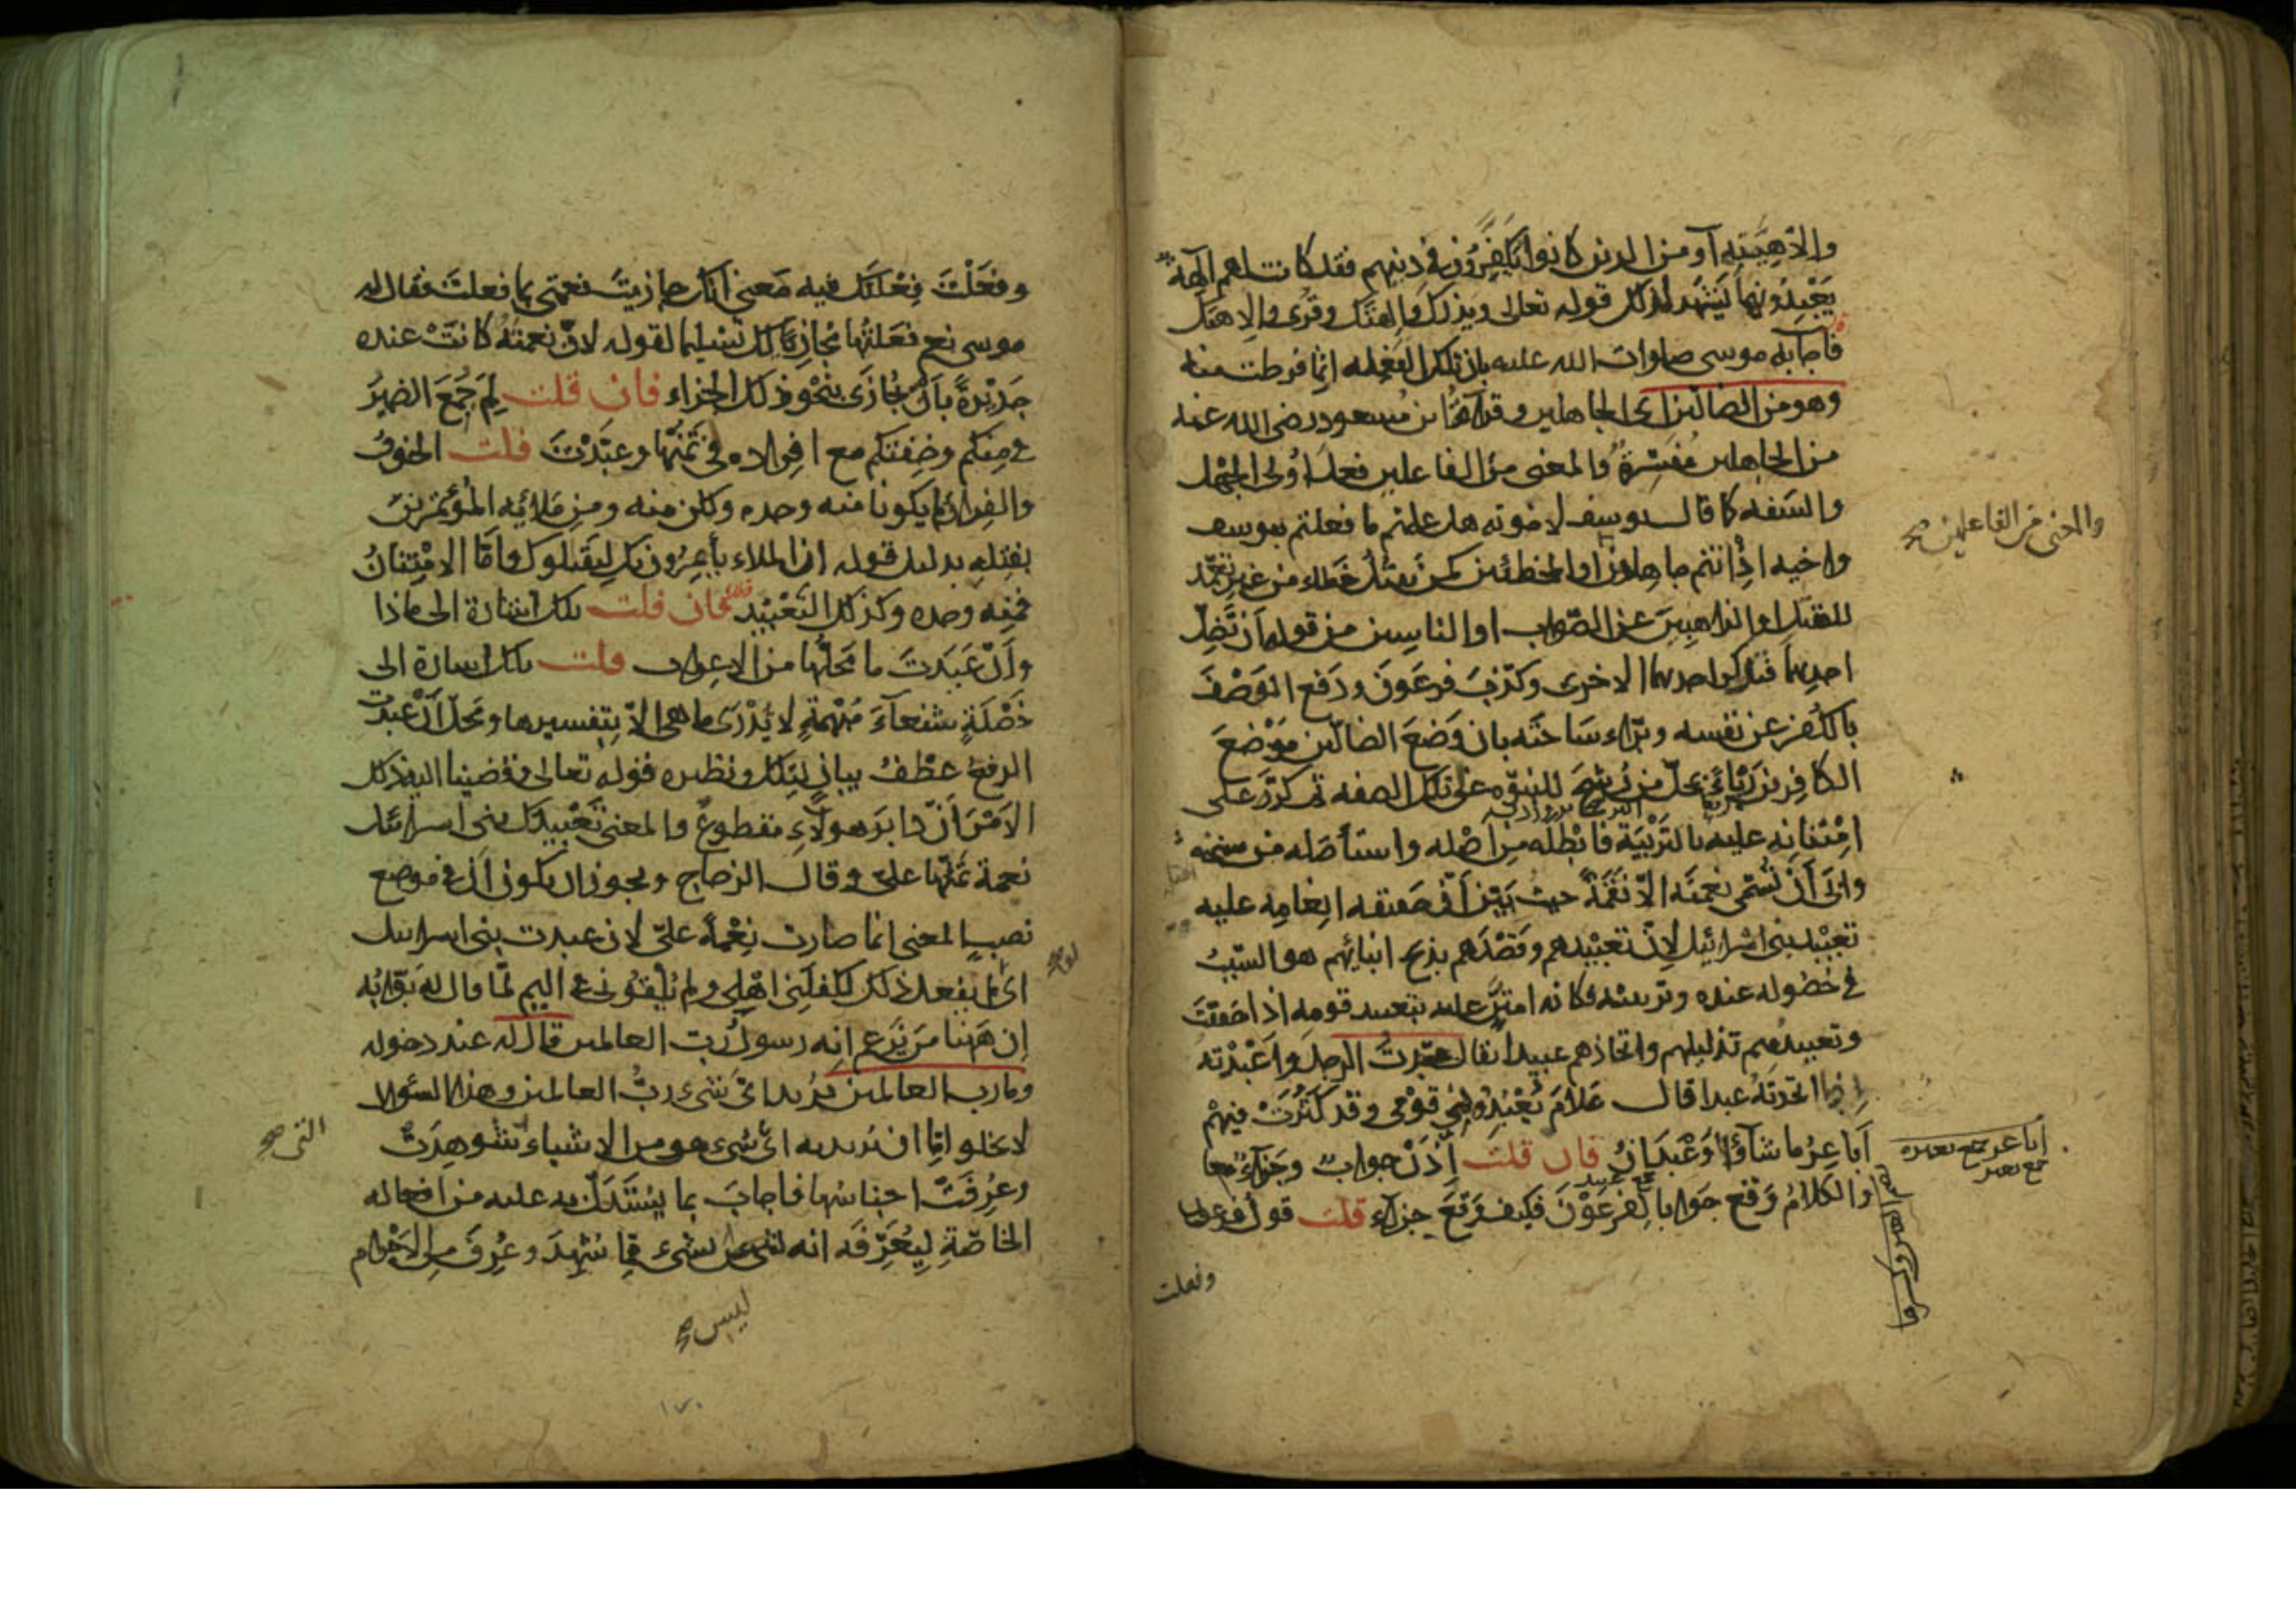 وإلاهيته أو من الذين كانوا يكفرون في دينهم فقد كانت لهم آلهة
يعبدونها يشهد لذلك قوله تعالى ويذرك وآلهتك وقرئ وإلاهتك
فأجابه موسى صلوات الله عليه بان تلك الفعله انما فرطت منه
وهو من الضالين اى الجاهلين وقراءة ابن مسعود رضى الله عنه
من الجاهلين مفسرة والمعنى من الفاعلين فعل اولى الجهل
والسفه كما قال يوسف لاخوته هل علمتم ما فعلتم بيوسف
واخيه اذ انتم جاهلون او المخطئين كمن يقتل خطاء من غير تعمد
للقتل او الذاهبين عن الصواب او الناسين من قوله أن تضل
احديهما فتذكر احديهما الاخرى وكذب فرعون ودفع الوصف
بالكفر عن نفسه وبراء ساحته بان وضع الضالين موضع
الكافرين ربئا بمحل من رشح للنبوه عن تلك الصفه ثم كر على
امتنانه عليه بالتربية فابطله من اصله واستأصله من سنخه
وابى أن تسمى نعمته الا نقمة حيث بين أن حقيقه انعامه عليه
تعبيد بنى اسرائيل لان تعبيدهم وقصدهم بذبح ابنائهم هو السبب
فى حصوله عنده وتربيته فكانه امتن عليه بتعبيد قومه اذا حققت
وتعبيدهم تذليلهم واتخاذهم عبيدا يقال عبدت الرجل واعبدته
اذا اتخذته عبدا قال علام يعبدنى قومى وقد كثرت فيهم
أباعر ما شاؤا وعبدان فان قلت إذن جواب وجزاء معا
والكلام وقع جوابا لفرعون فكيف وقع جزاء قلت قول فرعون
وفعلت
والمعنى من الفاعلين صح
اباعر جمع بعره
جمع بعير
جمع عبيد
وفعلت فعلتك فيه معنى انك جازيت نعمتى بما فعلت فقال له
موسى نعم فعلتها مجازيا لك تسليما لقوله لان نعمته كانت عنده
جديرة بأن تجازى بنحو ذلك الجزاء فان قلت لم جمع الضمير
فى منكم وخفتكم مع افراده فى تمنها وعبدت قلت الخوف
والفرار لم يكونا منه وحده ولكن منه ومن ملائه المؤتمرين
بقتله بدليل قوله ان الملاء يأتمرون بك ليقتلوك وأما الامتنان
فمنه وحده وكذلك التعبيد فان قلت تلك اشارة الى ماذا
وأن عبدت ما محلها من الاعراب قلت تلك اشارة الى
خصلة شنعاء مبهمة لا يدرى ما هى الا بتفسيرها ومحل أن عبدت
الرفع عطف بيان لتلك ونظيره قوله تعالى وقضينا اليه ذلك
الامر أن دابر هولاء مقطوع والمعنى تعبيدك بنى اسرائيل
نعمة تمنها على وقال الزجاج ويجوز ان يكون أن فى موضع
نصب المعنى انما صارت نعمة على لان عبدت بنى اسرائيل
اى لم يفعل ذلك لكفلنى اهلى ولم يلقونى فى اليم لما قال له بوابه
ان ههنا من يزعم انه رسول رب العالمين قال له عند دخوله
وما رب العالمين يريد اى شىء رب العالمين وهذا السؤال
لا يخلو اما ان يريد به اى شىء هو من الاشياء شوهدت
وعرفت اجناسها فاجاب بما يستدل به عليه من افعاله
الخاصة ليعرفه انه شىء مما شهد وعرف من الاجرام
لو صح
التى صح
ليس صح
١٧٠